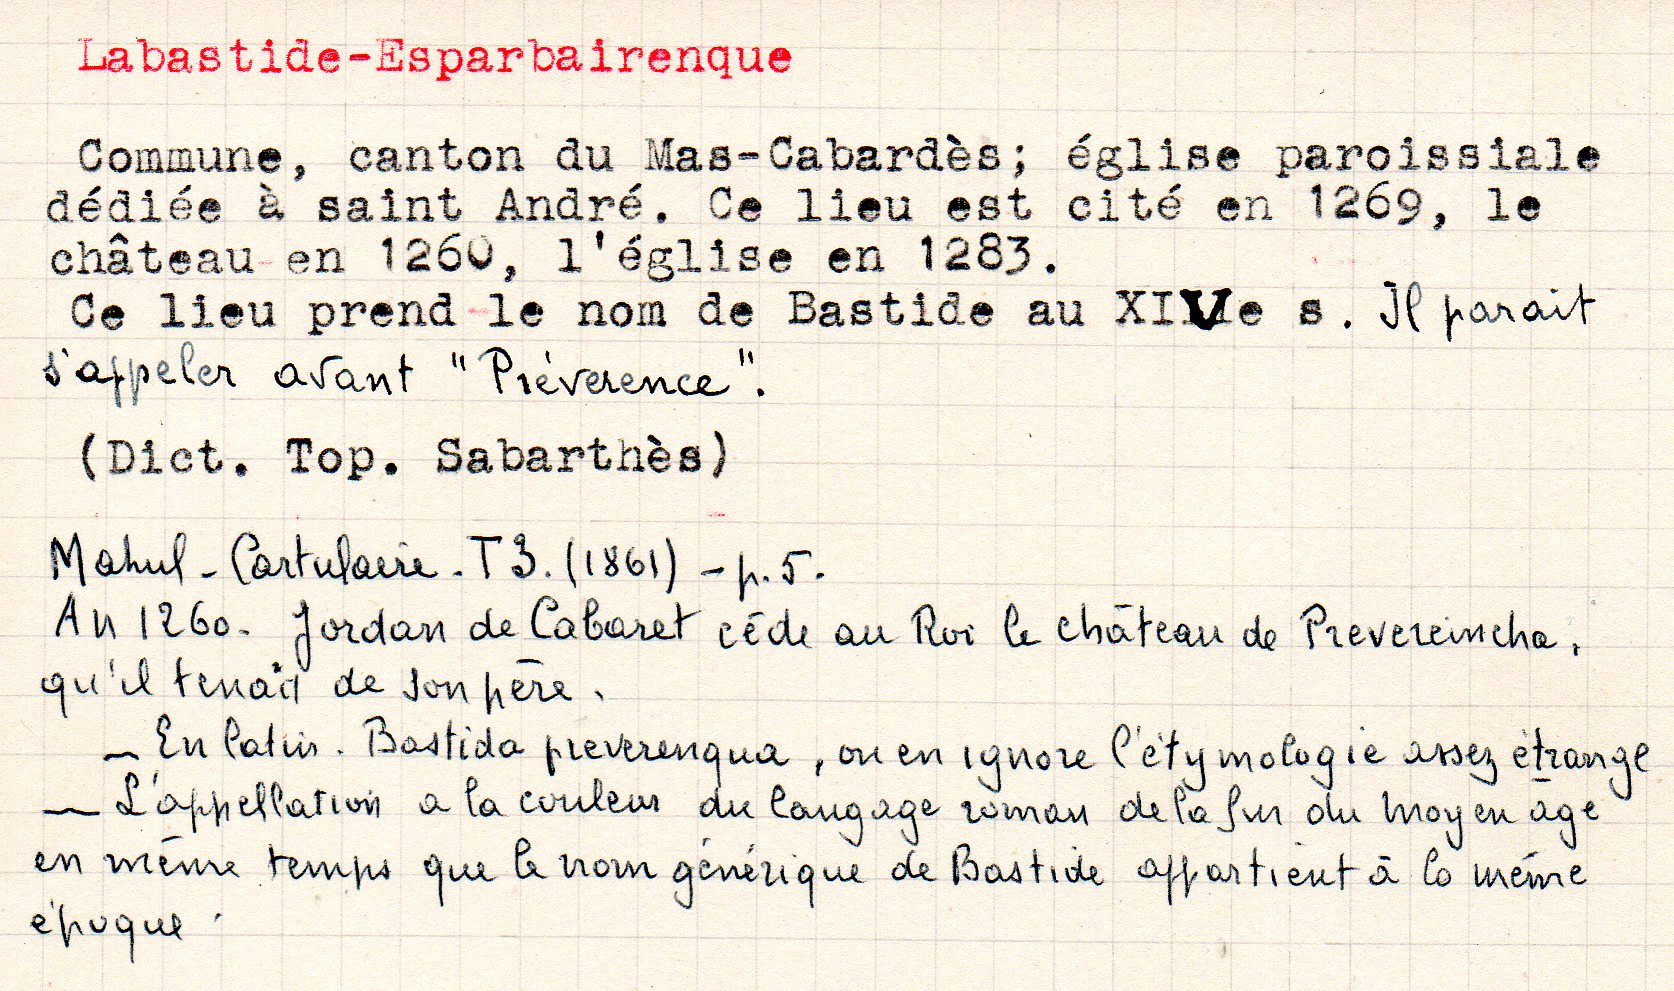 Labastide-Esparbairenque
Commune, canton du Mas-Cabardès; église paroissiale
dédiée à saint André. Ce lieu est cité en 1269, le
château en 1260, l'église en 1283.
Ce lieu prend le nom de Bastide au XIVe s. Il parait
s'appeler avant "Préverence".
(Dict. Top. Sabarthès)
Mahul - Cartulaire - T 3. (1861) - p. 5.
An 1260. Jordan de Cabaret cède au Roi le château de Prevereincha,
qu'il tenait de son père.
— En latin. Bastida preverenqua, on en ignore l'étymologie assez étrange
— L'appellation a la couleur du langage roman de la fin du moyen âge
en même temps que le nom générique de Bastide appartient à la même
époque.